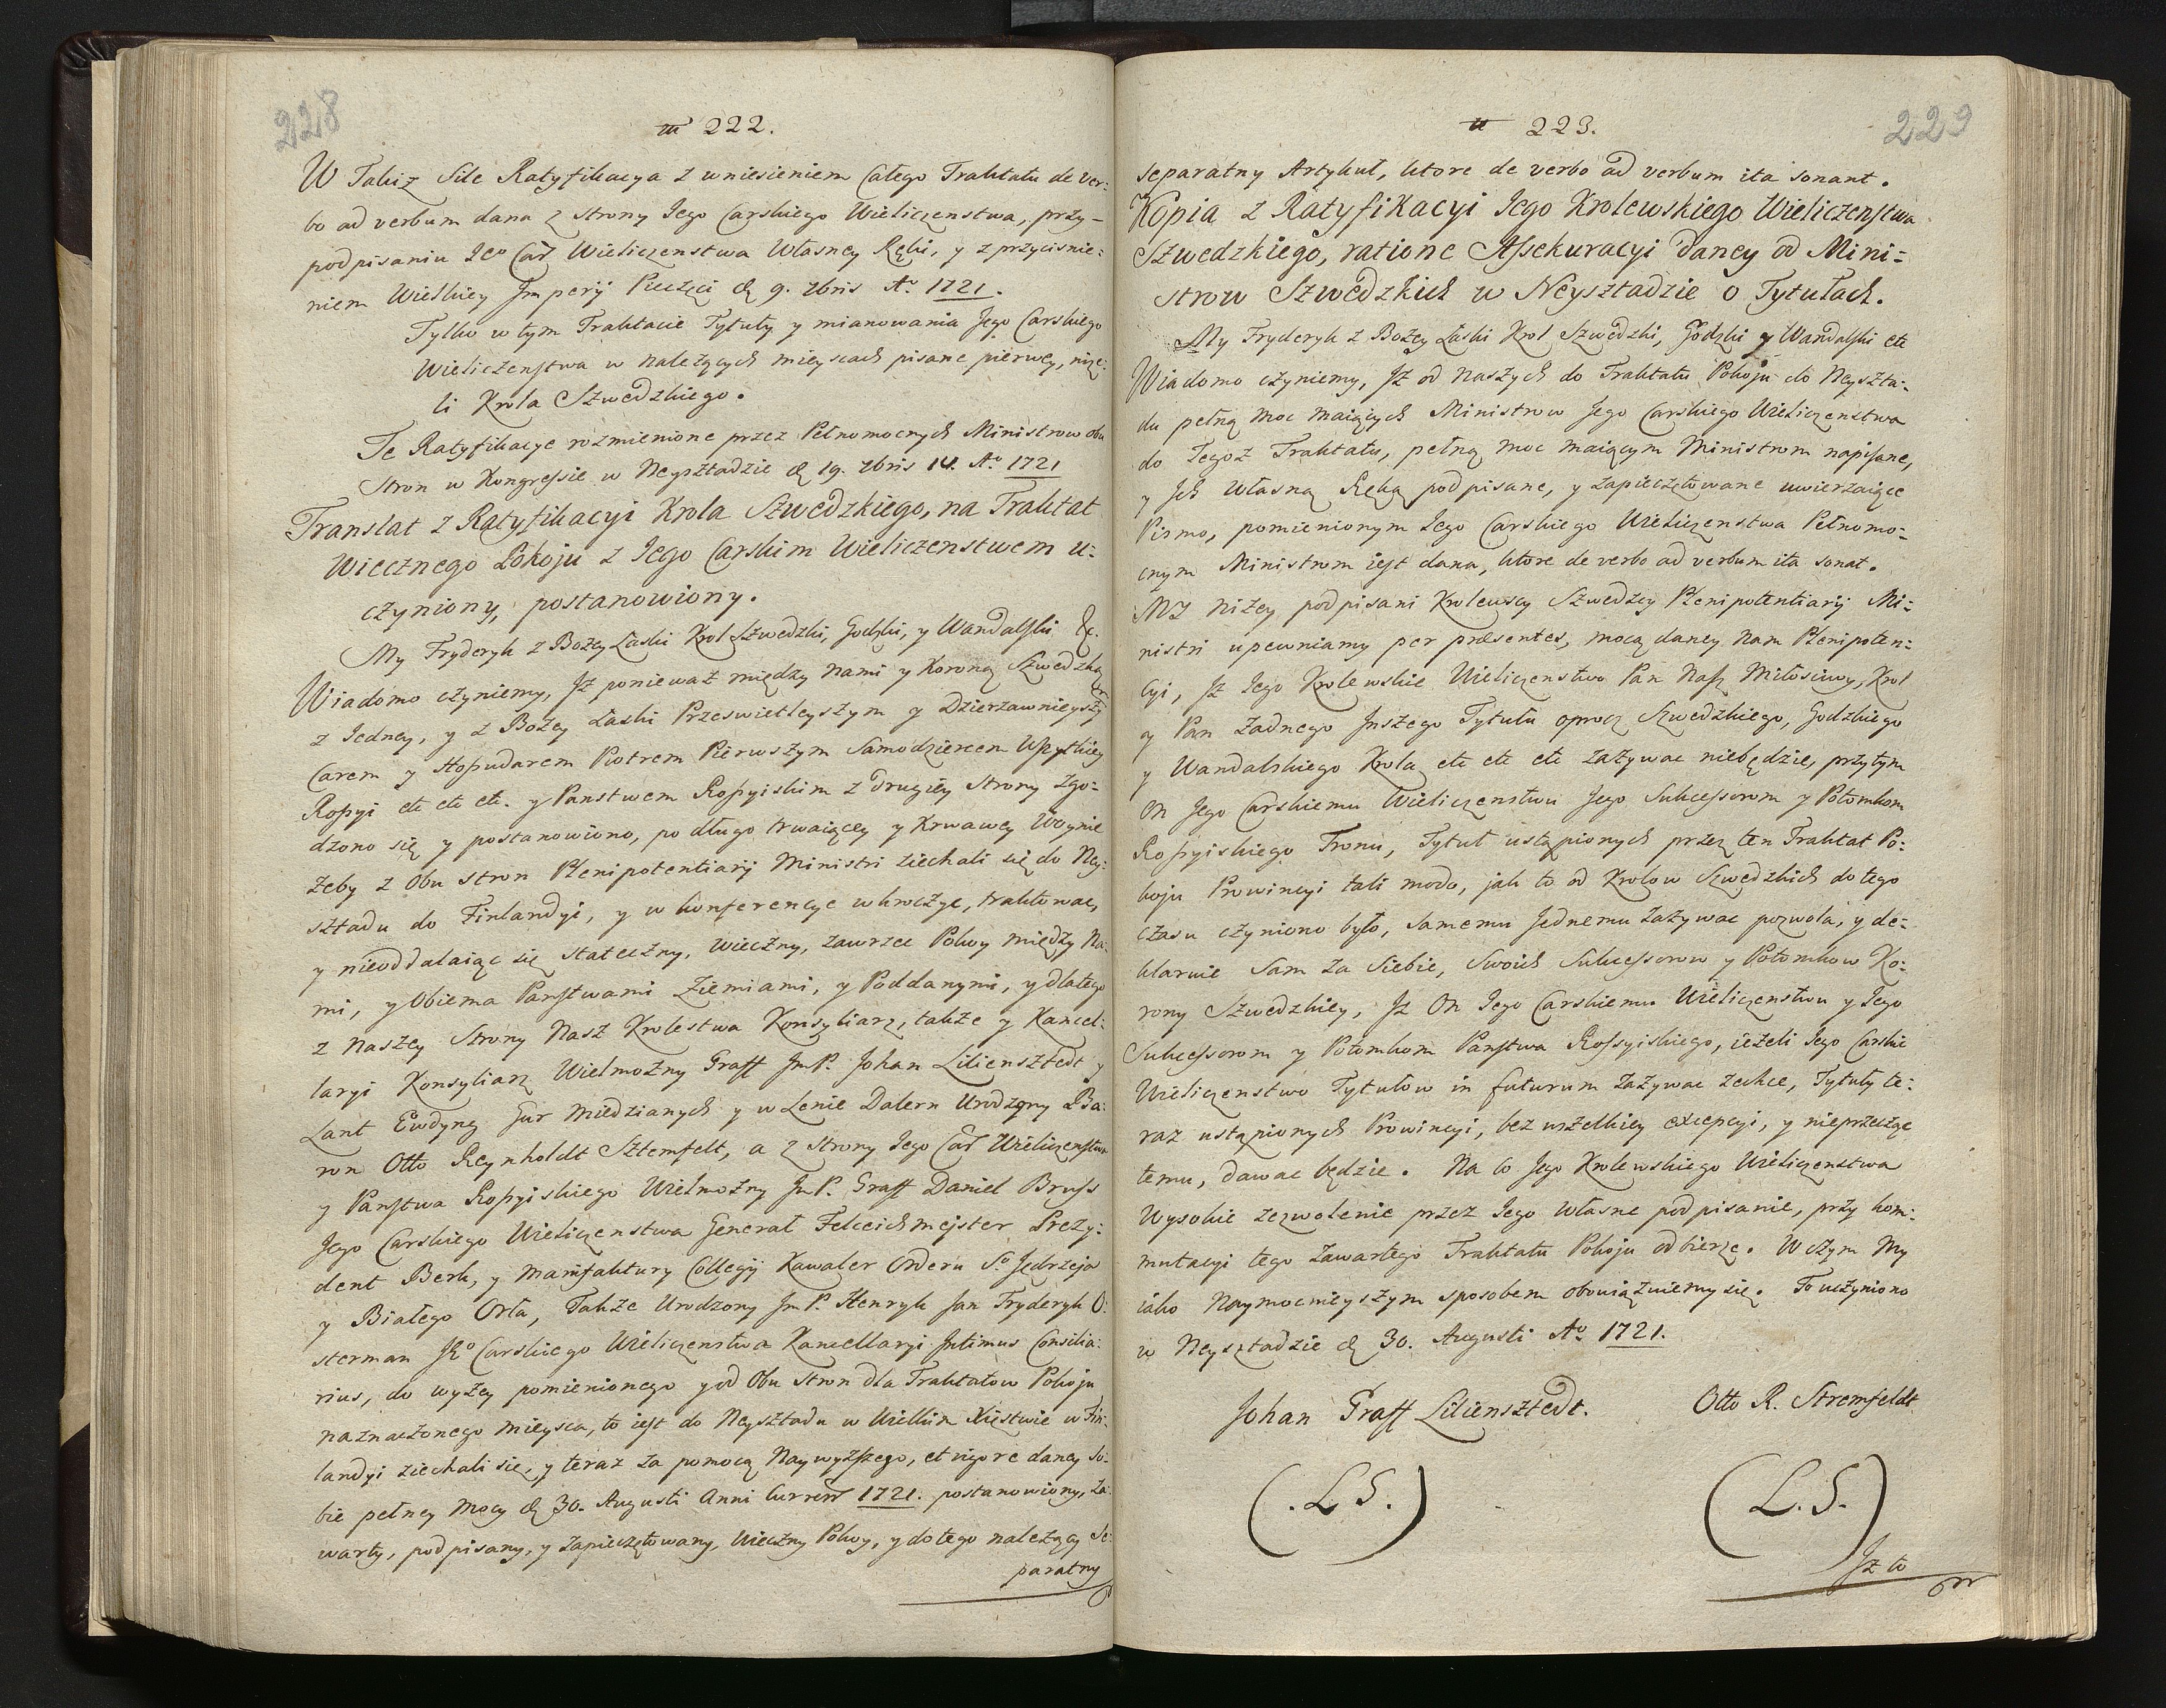 228
222.
W Takiz Sile Ratyfikacya z wniesieniem Całego Traktatu de Ver-
bo ad verbum dana z strony Jego Carskiego Wieliczenstwa, przy-
podpisaniu Jeo Car Wieliczenstwa Własney Ręki, y z przycisnie-
niem Wielkiey Imperij Pieczęci d. 9. 7bris Ao 1721.
Tylko w tym Traktacie Tytuły y mianowania Jego Carskiego
Wieliczenstwa w należących mieyscach pisane pierwey, niże-
li Krola Szwedzkiego.
Te Ratyfikacye rozmienione przez Pełnomocnych Ministrow obu
Stron w Kongressie w Neysztadzie d. 19. 7bris Ao 1721
Translat z Ratyfikacyi Krola Szwedzkiego, na Traktat
Wiecznego Pokoju z Jego Carskim Wieliczenstwem u-
czyniony, postanowiony.
My Fryderyk z Bożey Łaski Krol Szwedzki, Godzki, y Wandalski &c.
Wiadomo czyniemy, Iż ponieważ między nami y Koroną Szwedzką
z Jedney, y z Bożey Łaski Przeswietleyszym y Dzierzawnieyszy
Carem y Hospudarem Piotrem Pierwszym Samodziercem Wszytkiey
Rossyi etc etc etc. y Panstwem Rossyiskim z drugiey strony zgo-
dzono się y postanowiono, po długo trwaiącey y Krwawey Woynie
żeby z Obu stron Plenipotentiarij Ministri ziechali się do Ney-
sztadu do Finlandyi, y w konferencye wkroczyc, traktowac,
y nieoddalaiąc się stateczny, wieczny, zawrzec Pokoy między Na-
mi, y Obiema Panstwami Ziemiami, y Poddanymi, y dlatego
z naszey Strony Nasz Krolestwa Konsyliarz, także y Kancel-
laryi Konsyliarz Wielmożny Graff Im P. Johan Liliensztedt y
Lant Ewdyng Gur Miedzianych y w Lenie Dalern Urodzony Ba-
ron Otto Reynholdt Sztemfelt, a z strony Jego Car Wieliczenstwa
y Panstwa Rossyiskiego Wielmożny Im P. Graff Daniel Bruss
Jego Carskiego Wieliczenstwa Generał Felceichmejster Prezy-
dent Berk, y Manifaktury Collegij Kawaler Orderu So Jędrzeja
y Białego Orła, Także Urodzony Im P. Henryk Jan Fryderyk O-
sterman JEo Carskiego Wieliczenstwa Kancellaryi Intimus Consilia-
rius, do wyżey pomienionego y od Obu Stron dla Traktatow Pokoju
naznaczonego mieysca, to iest do Neysztadu w Wielkim Xięstwie w Fin-
landyi ziechali się, y teraz za pomocą Naywyższego, et vigore daney So-
bie pełney Mocy d. 30. Augusti Anni Curren 1721. postanowiony, Za-
warty, podpisany, y zapieczętowany, Wieczny Pokoy, y do tego należący Se-
paratny
229
223.
separatny Artykuł, ktore de verbo ad verbum ita sonant.
Kopia z Ratyfikacyi Jego Krolewskiego Wieliczenstwa
Szwedzkiego, ratione Assekuracyi daney od Mini-
strow Szwedzkich w Neysztadzie o Tytułach.
My Fryderyk z Bożey Łaski Krol Szwedzki, Godzki y Wandalski etc
Wiadomo czyniemy, Iż od Naszych do Traktatu Pokoju do Neyszta-
du pełną moc maiących Ministrow Jego Carskiego Wieliczenstwa
do Tegoż Traktatu, pełną moc maiącym Ministrom napisane,
y Ich własną Ręką podpisane, y zapieczętowane uwierzaiące
Pismo, pomienionym Jego Carskiego Wieliczenstwa Pełnomo-
cnym Ministrom iest dana, ktore de verbo ad verbum ita sonat.
MY niżey podpisani Krolewscy Szwedzcy Plenipotentiarij Mi-
nistri upewniamy per præsentes, mocą daney Nam Plenipoten-
cyi, Iż Jego Krolewskie Wieliczenstwo Pan Nasz Miłosciwy, Krol
y Pan Żadnego Inszego Tytułu oprocz Szwedzkiego, Godzkiego
y Wandalskiego Krola etc etc etc zażywac niebędzie, przytym
On Jego Carskiemu Wieliczenstwu Jego Sukcessorom y Potomkom
Rossyiskiego Tronu, Tytuł ustąpionych przez ten Traktat Po-
koju Prowincyi tali modo, jak to od Krolow Szwedzkich do tego
czasu czyniono było, samemu Jednemu zażywac pozwola, y de-
klaruie Sam za Siebie, Swoich Sukcessorow y Potomkow Ko-
rony Szwedzkiey, Iż On Jego Carskiemu Wieliczenstwu y Jego
Sukcessorom y Potomkom Panstwa Rossyiskiego, ieżeli Jego Carskie
Wieliczenstwo Tytułow in futurum zażywac zechce, Tytuły te-
raz ustąpionych Prowincyi, bez wszelkiey excepcyi, y nieprzecząc
temu, dawac będzie. Na co Jego Krolewskiego Wieliczenstwa
Wysokie zezwolenie przez Jego własne podpisanie, przy kom-
mutacyi tego zawartego Traktatu Pokoju odbierze. W czym My
iako Naymocnieyszym sposobem obowiązuiemy się. To uczyniono
w Neysztadzie d. 30. Augusti Ao 1721.
Johan Graff Liliensztedt. Otto R. Stremfeldt
(.L S.) (L.S.)
Iż to